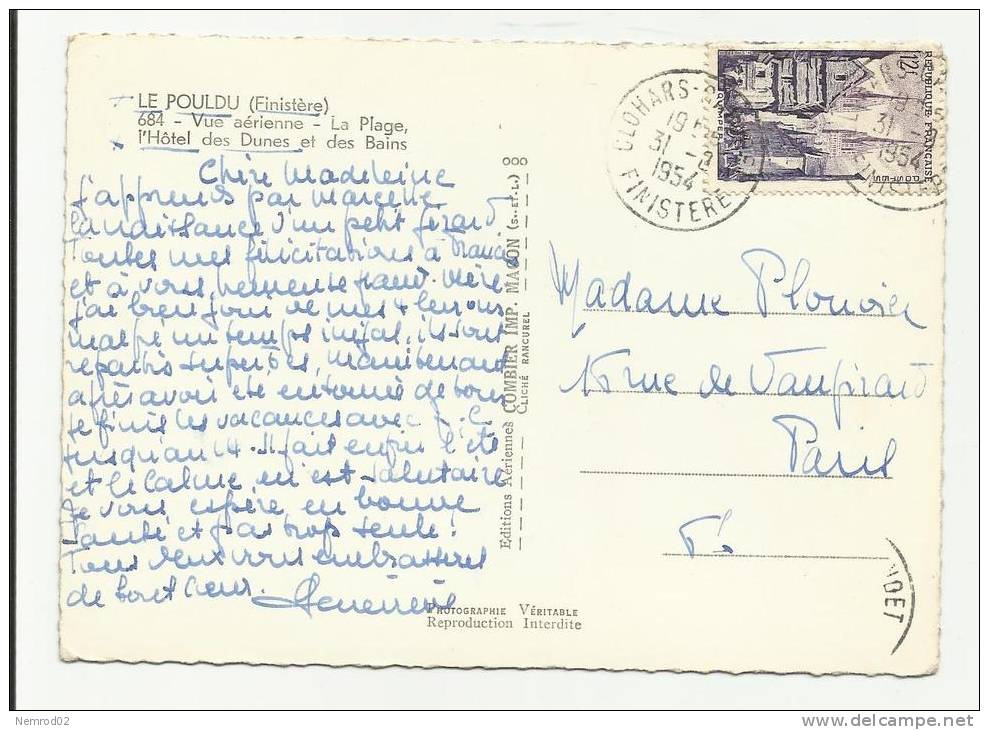 LE POULDU (Finistère)
684 - Vue aérienne - La Plage,
l'Hôtel des Dunes et des Bains
Chère Madeleine
J'apprends par
la naissance d'un petit
Toutes mes félicitations à
et à vous, heureuse grand'Mère
j'ai bien joui de mes 4
malgré un temps
repartis superbes, maintenant
après avoir été entourée de tous
je finis les vacances avec J. C.
jusqu'au 14. Il fait enfin l'été
et le calme m'est salutaire
Je vous espère en bonne
santé et pas trop seule!
Tous deux vous embrasserez
de tout cœur. Geneviève
Editions Aériennes COMBIER IMP. MACON (S. ET. L.)
CLICHÉ RANCUREL
PHOTOGRAPHIE VÉRITABLE
Reproduction Interdite
REPUBLIQUE FRANÇAISE
POSTES
12f
QUIMPER
CLOHARS-
19
31 -8
1954
FINISTERE
31
1954
Madame Plouvier
rue de Vaugirard
Paris
NDET
Nemrod02
http://www.delcampe.net